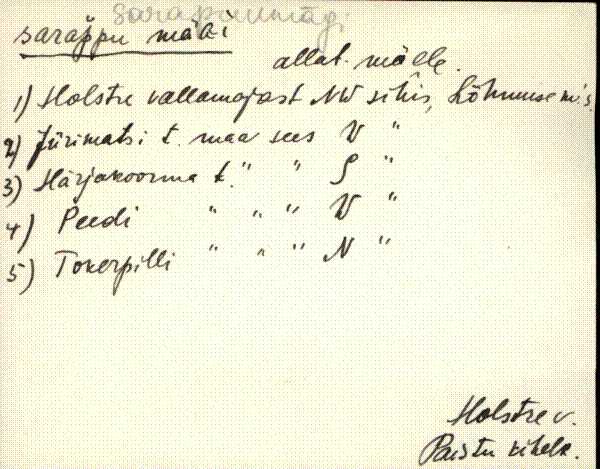 sarapuumägi
sarappu mä̀e·i
allat. mäele.
1) Holstre vallamajast NW sihis, Lõhmuse m. s.
2) Jürimatsi t. maa sees W "
3) Härjakoorma t. " " S "
4) Peedi " " " W "
5) Tokerpilli " " " N "
Holstre v.
Paistu kihelk.